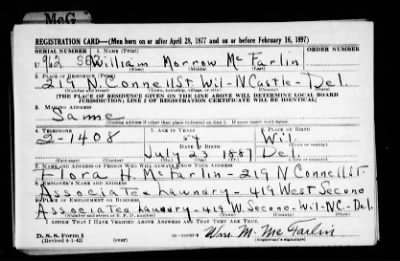 McG
REGISTRATION CARD—(Men born on or after April 28, 1877 and on or before February 16, 1897)
SERIAL NUMBER 1. NAME (Print) ORDER NUMBER
U962 William Morrow Mc Farlin
(First) (Middle) (Last)
2. PLACE OF RESIDENCE (Print)
219 N Connell St Wil-N Castle-Del.
(Number and street) (Town, township, village, or city) (County) (State)
[THE PLACE OF RESIDENCE GIVEN ON THE LINE ABOVE WILL DETERMINE LOCAL BOARD
JURISDICTION; LINE 2 OF REGISTRATION CERTIFICATE WILL BE IDENTICAL]
3. MAILING ADDRESS
Same
[Mailing address if other than place indicated on line 2. If same insert word same]
4. TELEPHONE 5. AGE IN YEARS 6. PLACE OF BIRTH
2-1408 54 Wil
DATE OF BIRTH (Town or county)
July 23 1887 Del.
(Exchange) (Number) (Mo.) (Day) (Yr.) (State or country)
7. NAME AND ADDRESS OF PERSON WHO WILL ALWAYS KNOW YOUR ADDRESS
Flora H. McFarlin-219 N Connell St
8. EMPLOYER'S NAME AND ADDRESS
Associated Laundry-419 West Second
9. PLACE OF EMPLOYMENT OR BUSINESS
Associated Laundry-419 W. Second-Wil-NC-Del.
(Number and street or R. F. D. number) (Town) (County) (State)
I AFFIRM THAT I HAVE VERIFIED ABOVE ANSWERS AND THAT THEY ARE TRUE.
D. S. S. Form 1
(Revised 4-1-42) (over) Wm. M. Mc Farlin